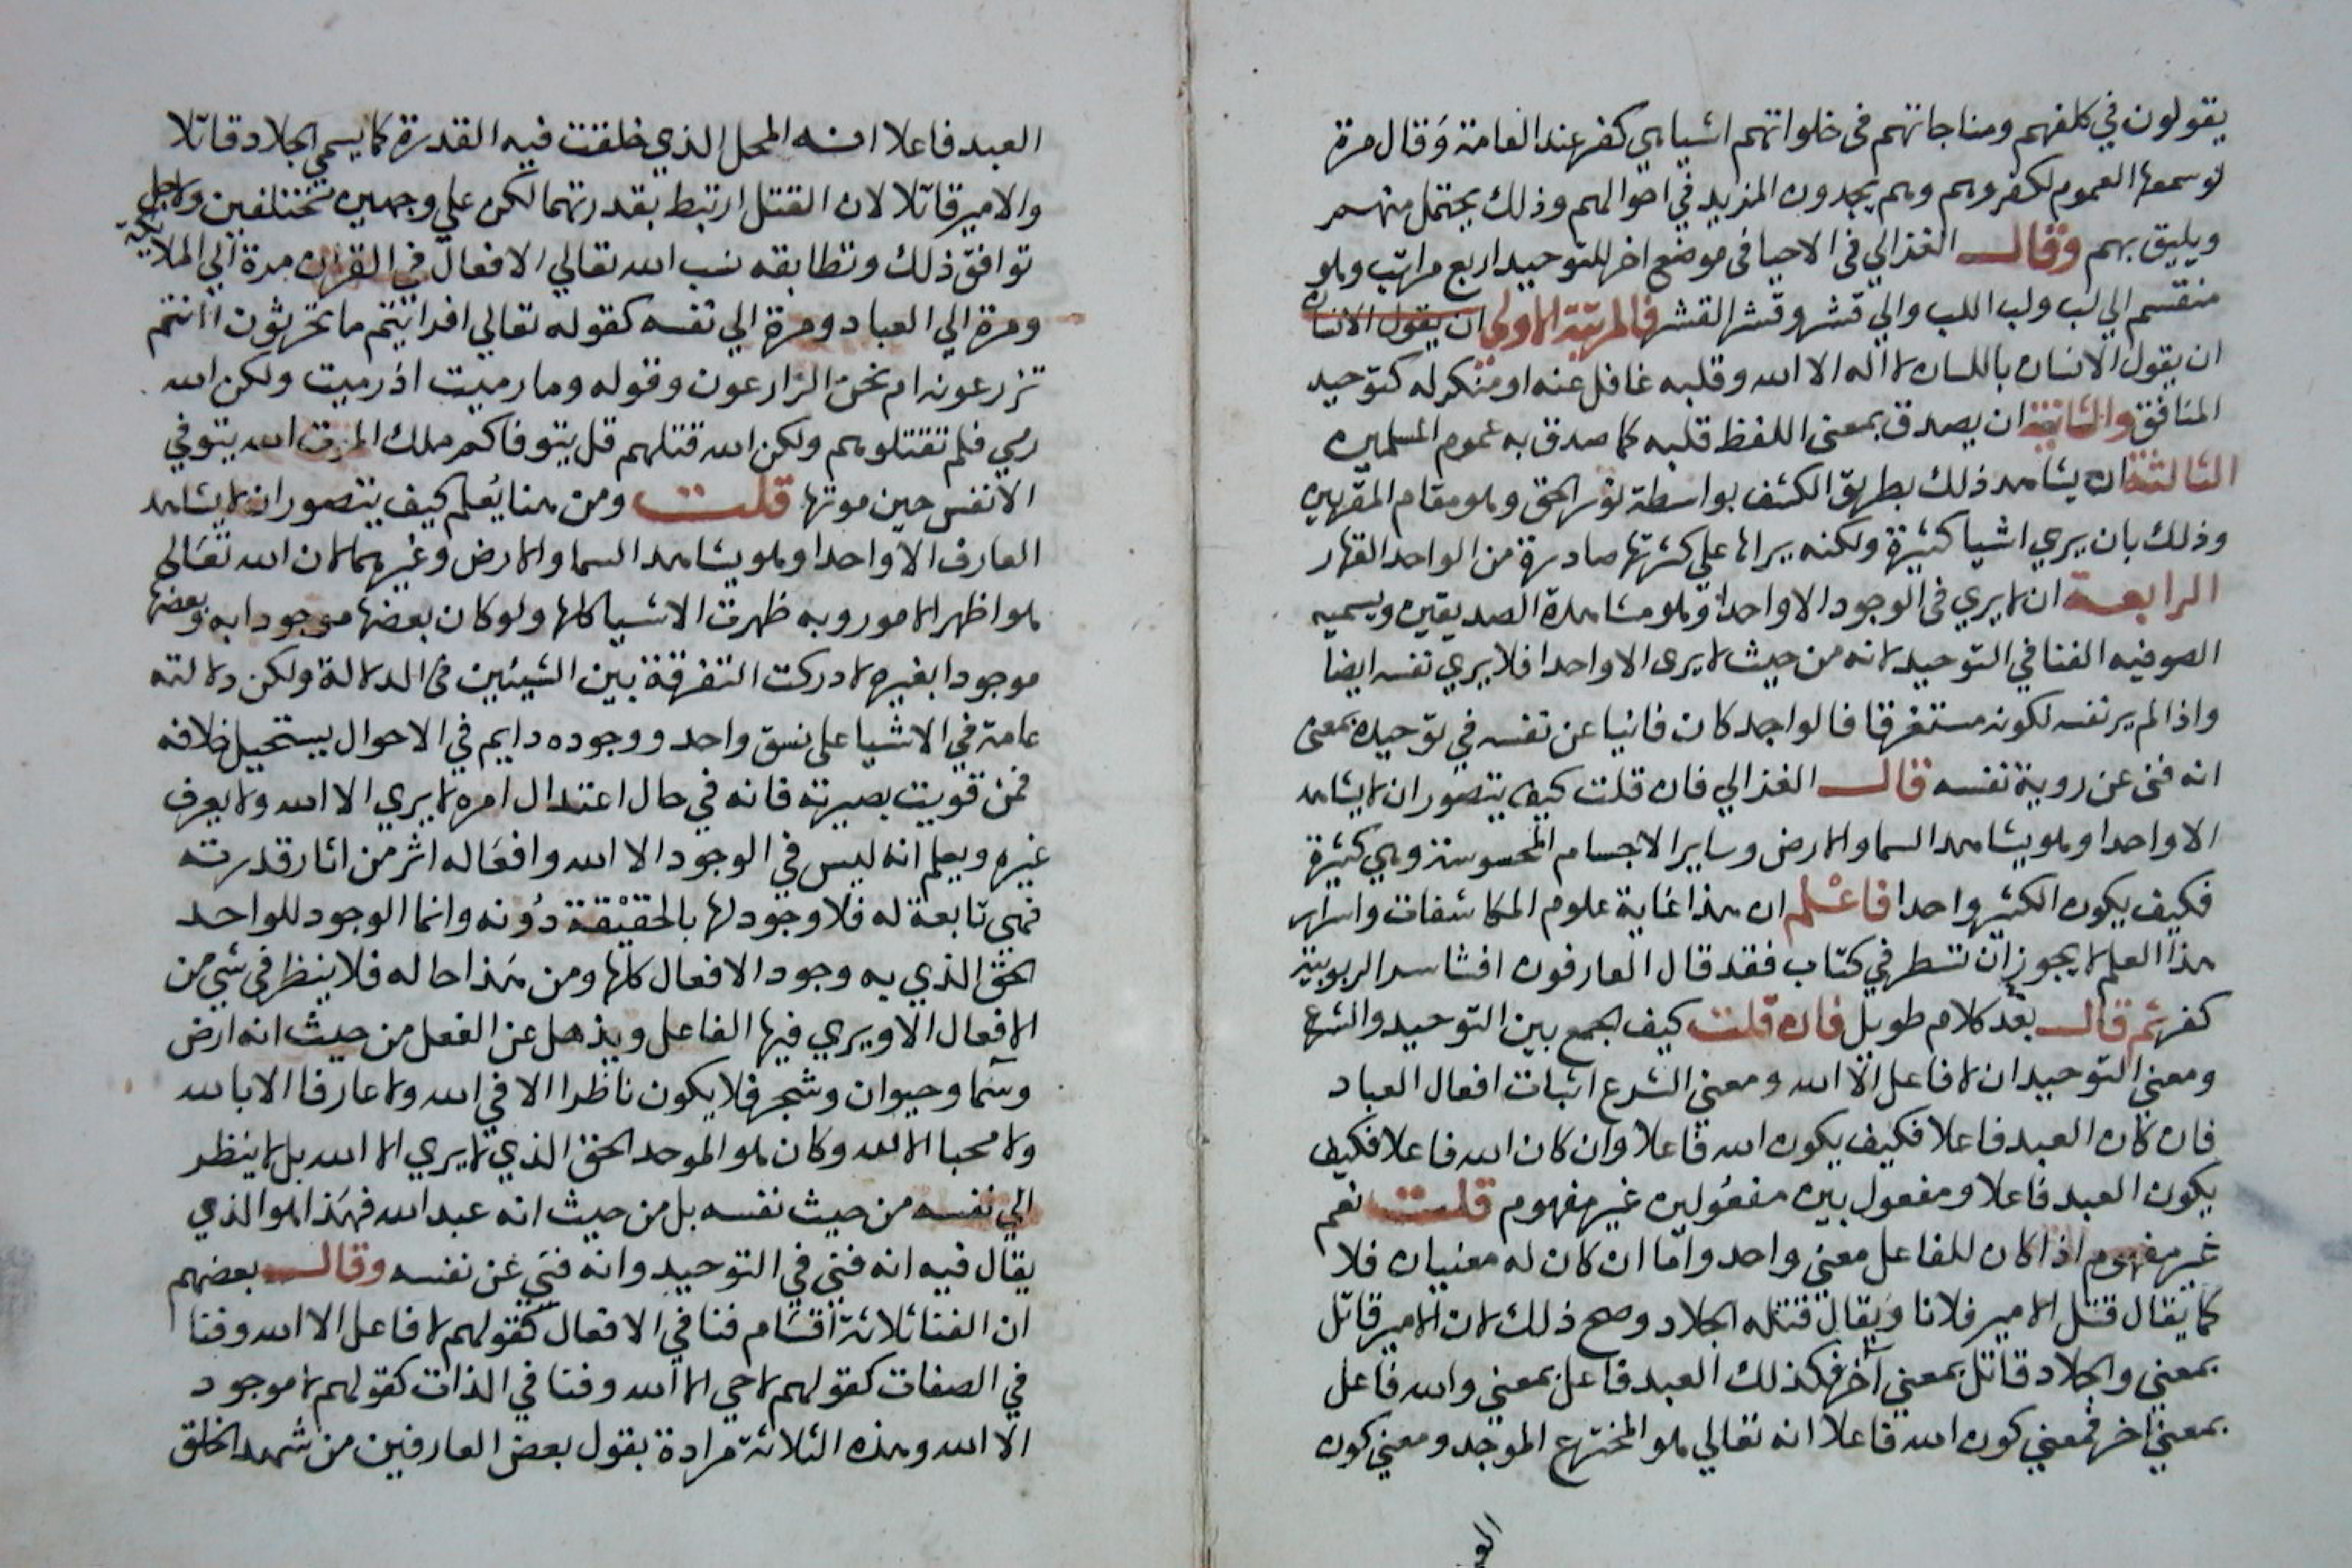 يقولون في كلفهم ومناجاتهم في خلواتهم اشيا هي كفر عند العامة وقال مرة
لو سمعها العموم لكفروهم وهم يجدون المزيد في احوالهم وذلك يحتمل منهم
ويليق بهم وقال الغزالي في الاحيا في موضع اخر للتوحيد اربع مراتب وهو
منقسم الي لب ولب اللب والي قشر وقشر القشر فالمرتبة الاولي ان يقول الانسان
ان يقول الانسان باللسان لا اله الا الله وقلبه غافل عنه او منكر له كتوحيد
المنافق والثانية ان يصدق بمعنى اللفظ قلبه كما صدق به عموم المسلمين
الثالثة ان يشاهد ذلك بطريق الكشف بواسطة نور الحق وهو مقام المقربين
وذلك بان يري اشيا كثيرة ولكنه يراها علي كثرتها صادرة من الواحد القهار
الرابعة ان لا يري في الوجود الا واحدا وهو مشاهدة الصديقين ويسميه
الصوفيه الفنا في التوحيد لانه من حيث لا يرى الا واحدا فلا يري نفسه ايضا
واذا لم ير نفسه لكونه مستغرقا فالواحد كان فانيا عن نفسه في توحيده بمعنى
انه فنى عن روية نفسه قال الغزالي فان قلت كيف يتصور ان لا يشاهد
الا واحدا وهو يشاهد السما والارض وساير الاجسام المحسوسة وهي كثيرة
فكيف يكون الكثير واحدا فاعلم ان هذا غاية علوم المكاشفات واسرار
هذا العلم لا يجوز ان تسطر في كتاب فقد قال العارفون افشا سر الربوبية
كفر ثم قال بعد كلام طويل فان قلت كيف الجمع بين التوحيد والشرع
ومعنى التوحيد ان لا فاعل الا الله ومعني الشرع اثبات افعال العباد
فان كان العبد فاعلا فكيف يكون الله فاعلا وان كان الله فاعلا فكيف
يكون العبد فاعلا ومفعول بين مفعولين غير مفهوم قلت نعم
غير مفهوم اذا كان للفاعل معني واحد واما ان كان له معنيان فلا
كما يقال قتل الامير فلانا ويقال قتله الجلاد وصح ذلك لان الامير قاتل
بمعني والجلاد قاتل بمعني آخر فكذلك العبد فاعل بمعني والله فاعل
بمعني اخر فمعني كون الله فاعلا انه تعالي هو المخترع الموجد ومعني كون
العبد
العبد فاعلا انه المحل الذي خلقت فيه القدرة كما يسمي الجلاد قاتلا
والامير قاتلا لان القتل ارتبط بقدرتهما لكن علي وجهين مختلفين ولاجل
توافق ذلك وتطابقه نسب الله تعالي الافعال في القران مرة الي الملايكة
ومرة الي العباد ومرة الي نفسه كقوله تعالي افرايتم ما تحرثون اانتم
تزرعونه ام نحن الزارعون وقوله وما رميت اذ رميت ولكن الله
رمي فلم تقتلوهم ولكن الله قتلهم قل يتوفاكم ملك الموت الله يتوفي
الانفس حين موتها قلت ومن هنا يعلم كيف يتصور ان لا يشاهد
العارف الا واحدا وهو يشاهد السما والارض وغيرهما لان الله تعالي
هو اظهر الامور وبه ظهرت الاشيا كلها ولو كان بعضها موجودا به وبعضها
موجودا بغيره لادركت التفرقة بين الشيئين في الدلالة ولكن دلالته
عامة في الاشيا على نسق واحد ووجوده دايم في الاحوال يستحيل خلافه
فمن قويت بصيرته فانه في حال اعتدال امره لا يري الا الله ولا يعرف
غيره ويعلم انه ليس في الوجود الا الله وافعاله اثر من اثار قدرته
فهي تابعة له فلا وجود لها بالحقيقة دونه وانما الوجود للواحد
الحق الذي به وجود الافعال كلها ومن هذا حاله فلا ينظر في شي من
الافعال الا ويري فيها الفاعل ويذهل عن الفعل من حيث انه ارض
وسما وحيوان وشجر فلا يكون ناظرا الا في الله ولا عارفا الا بالله
ولا محبا الا لله وكان هو الموحد الحق الذي لا يري الا الله بل لا ينظر
الي نفسه من حيث نفسه بل من حيث انه عبد الله فهذا هو الذي
يقال فيه انه فني في التوحيد وانه فني عن نفسه وقال بعضهم
ان الفنا ثلاثة اقسام فنا في الافعال كقولهم لا فاعل الا الله وفنا
في الصفات كقولهم لا حي الا الله وفنا في الذات كقولهم لا موجود
الا الله وهذه الثلاثة مرادة بقول بعض العارفين من شهد الخلق